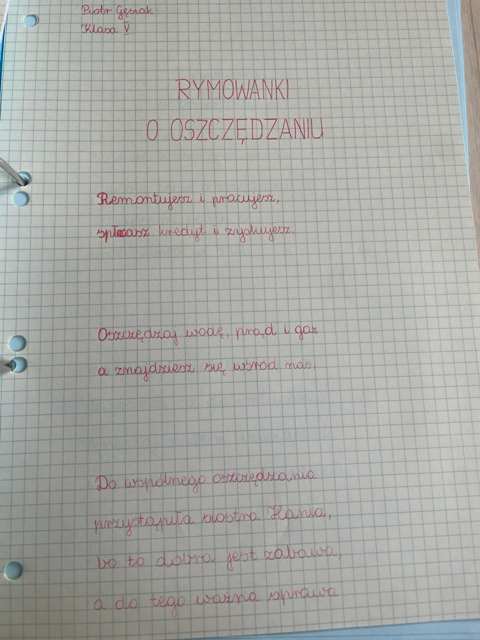 Piotr Gęsiak
Klasa V
RYMOWANKI
O OSZCZĘDZANIU
Remontujesz i pracujesz,
spłacasz kredyt i zyskujesz.
Oszczędzaj wodę, prąd i gaz
a znajdziesz się wśród nas.
Do wspólnego oszczędzania
przystąpiła siostra Hania,
bo to dobra jest zabawa,
a do tego ważna sprawa